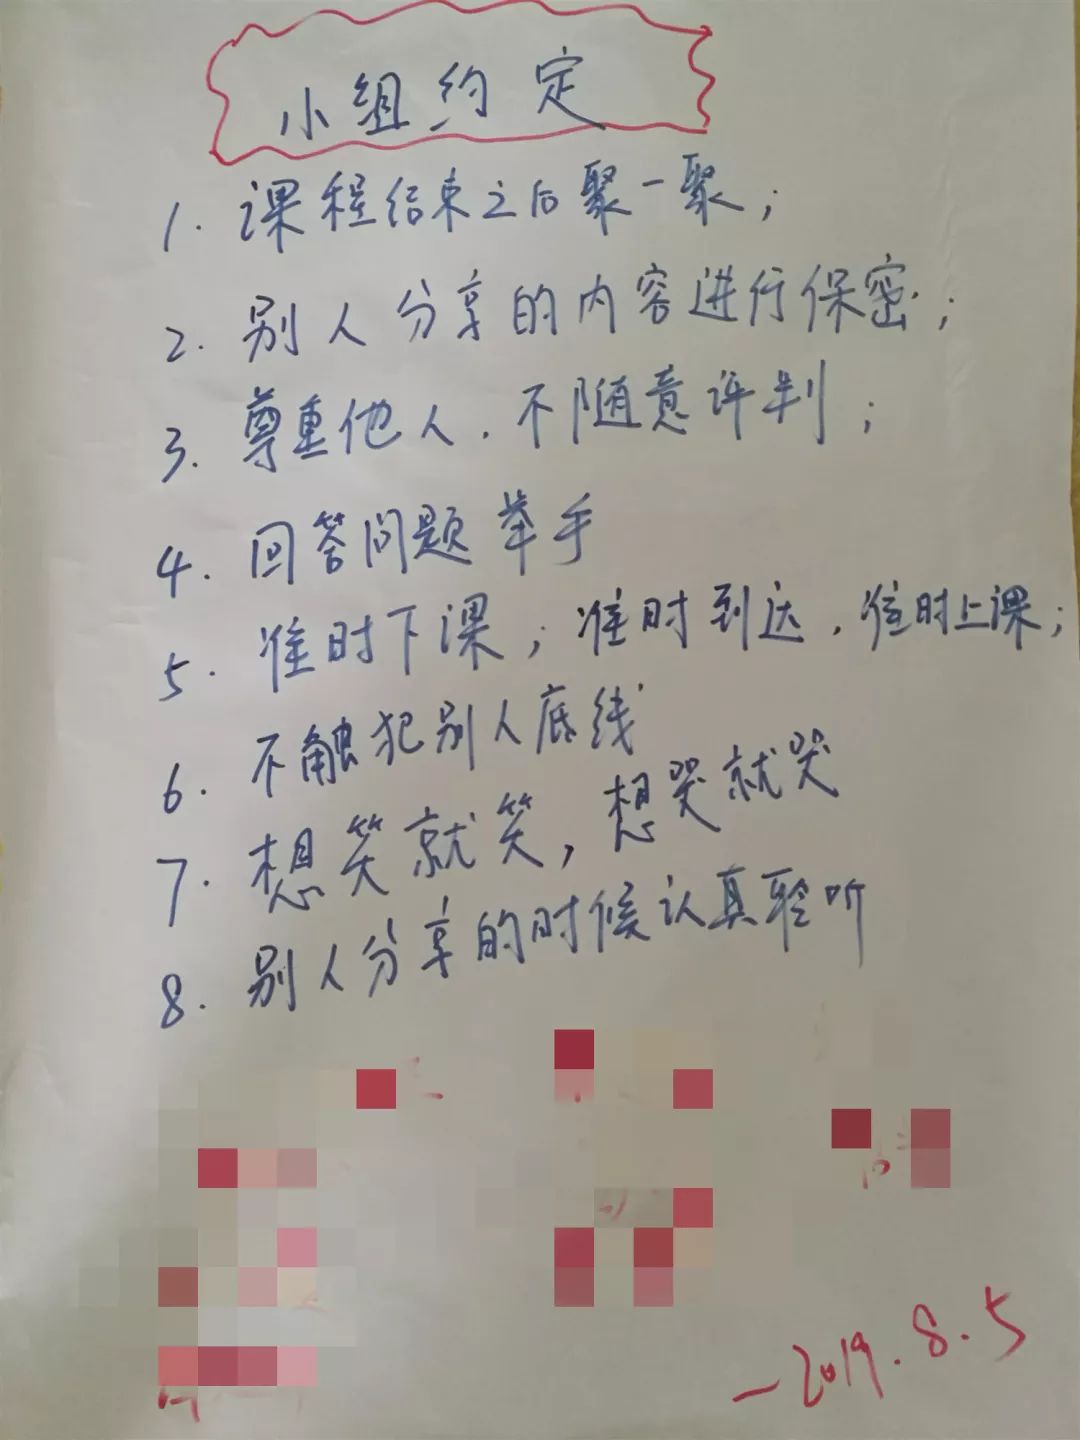 小组约定
1. 课程结束之后聚一聚；
2. 别人分享的内容进行保密；
3. 尊重他人．不随意评判；
4. 回答问题举手
5. 准时下课；准时到达，准时上课；
6. 不触犯别人底线
7. 想笑就笑，想哭就哭
8. 别人分享的时候认真聆听
—2019.8.5